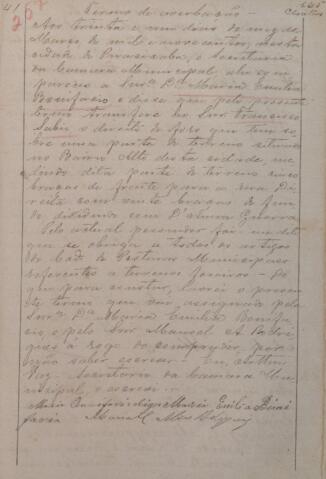 Termo de averbação
Aos trinta e um dias do mez de
Março de mil e novecentos, nesta
cidade de Piracicaba, e secretaria
da Camara Municipal, ahi com
pareceu a Snra. Da. Maria Emilia
Bonifacio e disse que pelo presente
termo transfere ao Snr. Francisco
Sabin o direito de foro que tem so
bre uma parte de terreno situado
no Bairro Alto desta cidade me
dindo dita parte de terreno cinco
braças de frente para a rua Di
reita com vinte braças de fundo
dividindo com D'alma Guerra
Pelo actual possuidor foi
que se obriga a todos os artigos
do Cod. de Posturas Municipaes
referentes a terrenos foreiros - Do
que para constar, lavrei o presen
te termo que vae assignado pela
Snra. Da. Maria Emilia Bonifa
cio, e pelo Snr. Manoel A. Rodri
gues a rogo do comprador, por
não saber escrever. Eu,
Secretario da Camara Mu
nicipal, o escrevi.
Maria Emilia Boni
facia
Manoel